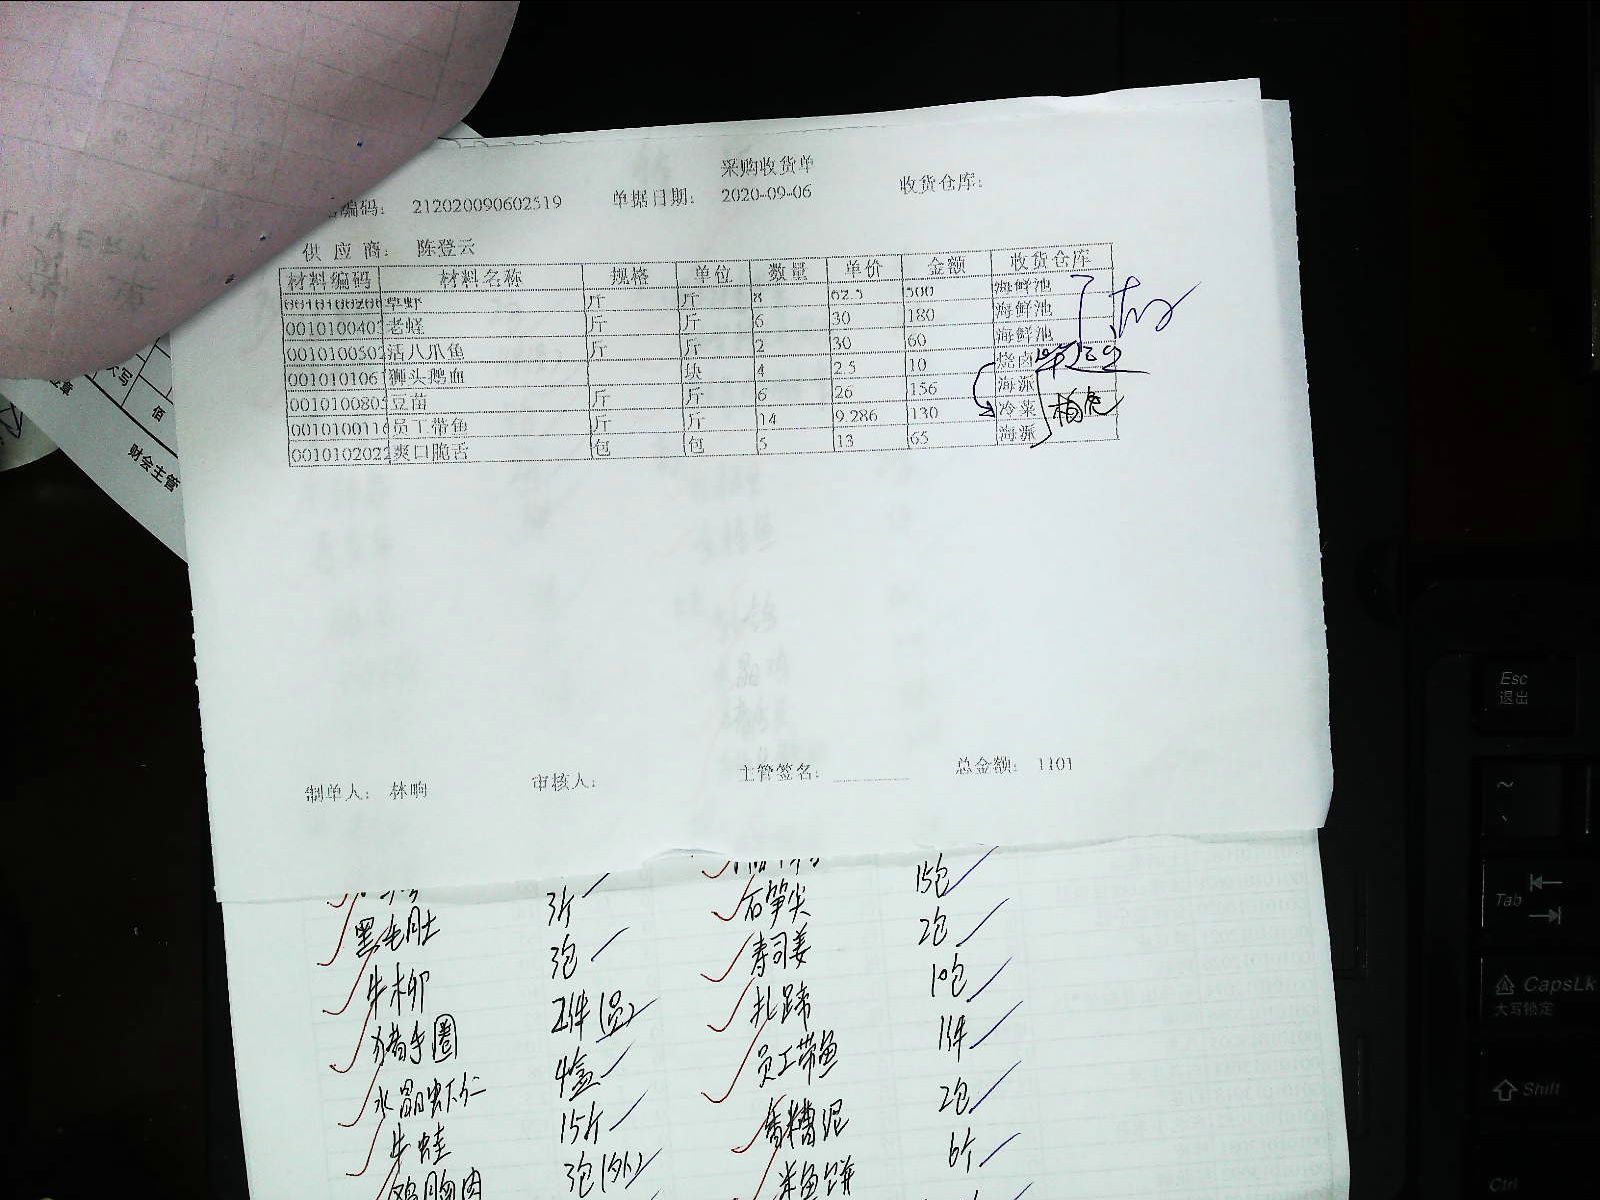 采购收货单
编码： 212020090602519 单据日期： 2020-09-06 收货仓库：
供 应 商： 陈登云
材料编码 材料名称 规格 单位 数量 单价 金额 收货仓库
0010100200 草虾 斤 斤 8 62.5 500 海鲜池
001010040 老蛏 斤 斤 6 30 180 海鲜池
001010050 活八爪鱼 斤 斤 2 30 60 海鲜池
001010106 狮头鹅血 块 4 2.5 10 烧卤
001010080 豆苗 斤 斤 6 26 156 海派
001010011 员工带鱼 斤 斤 14 9.286 130 冷菜
0010102022 爽口脆舌 包 包 5 13 65 海派
制单人： 林响 审核人： 主管签名： 总金额： 1101
3斤 15包
黑毛肚 3包 石笋尖 2包
牛柳 2件(员) 寿司姜 10包
猪手圈 4盒 扎蹄 1件
水晶虾仁 15斤 员工带鱼 2包
牛蛙 3包(外) 香糟泥 6个
鸡胸肉 米鱼饼
财会主管
佰
Esc
退出
~
Tab
CapsLk
大写锁定
Shift
Ctrl